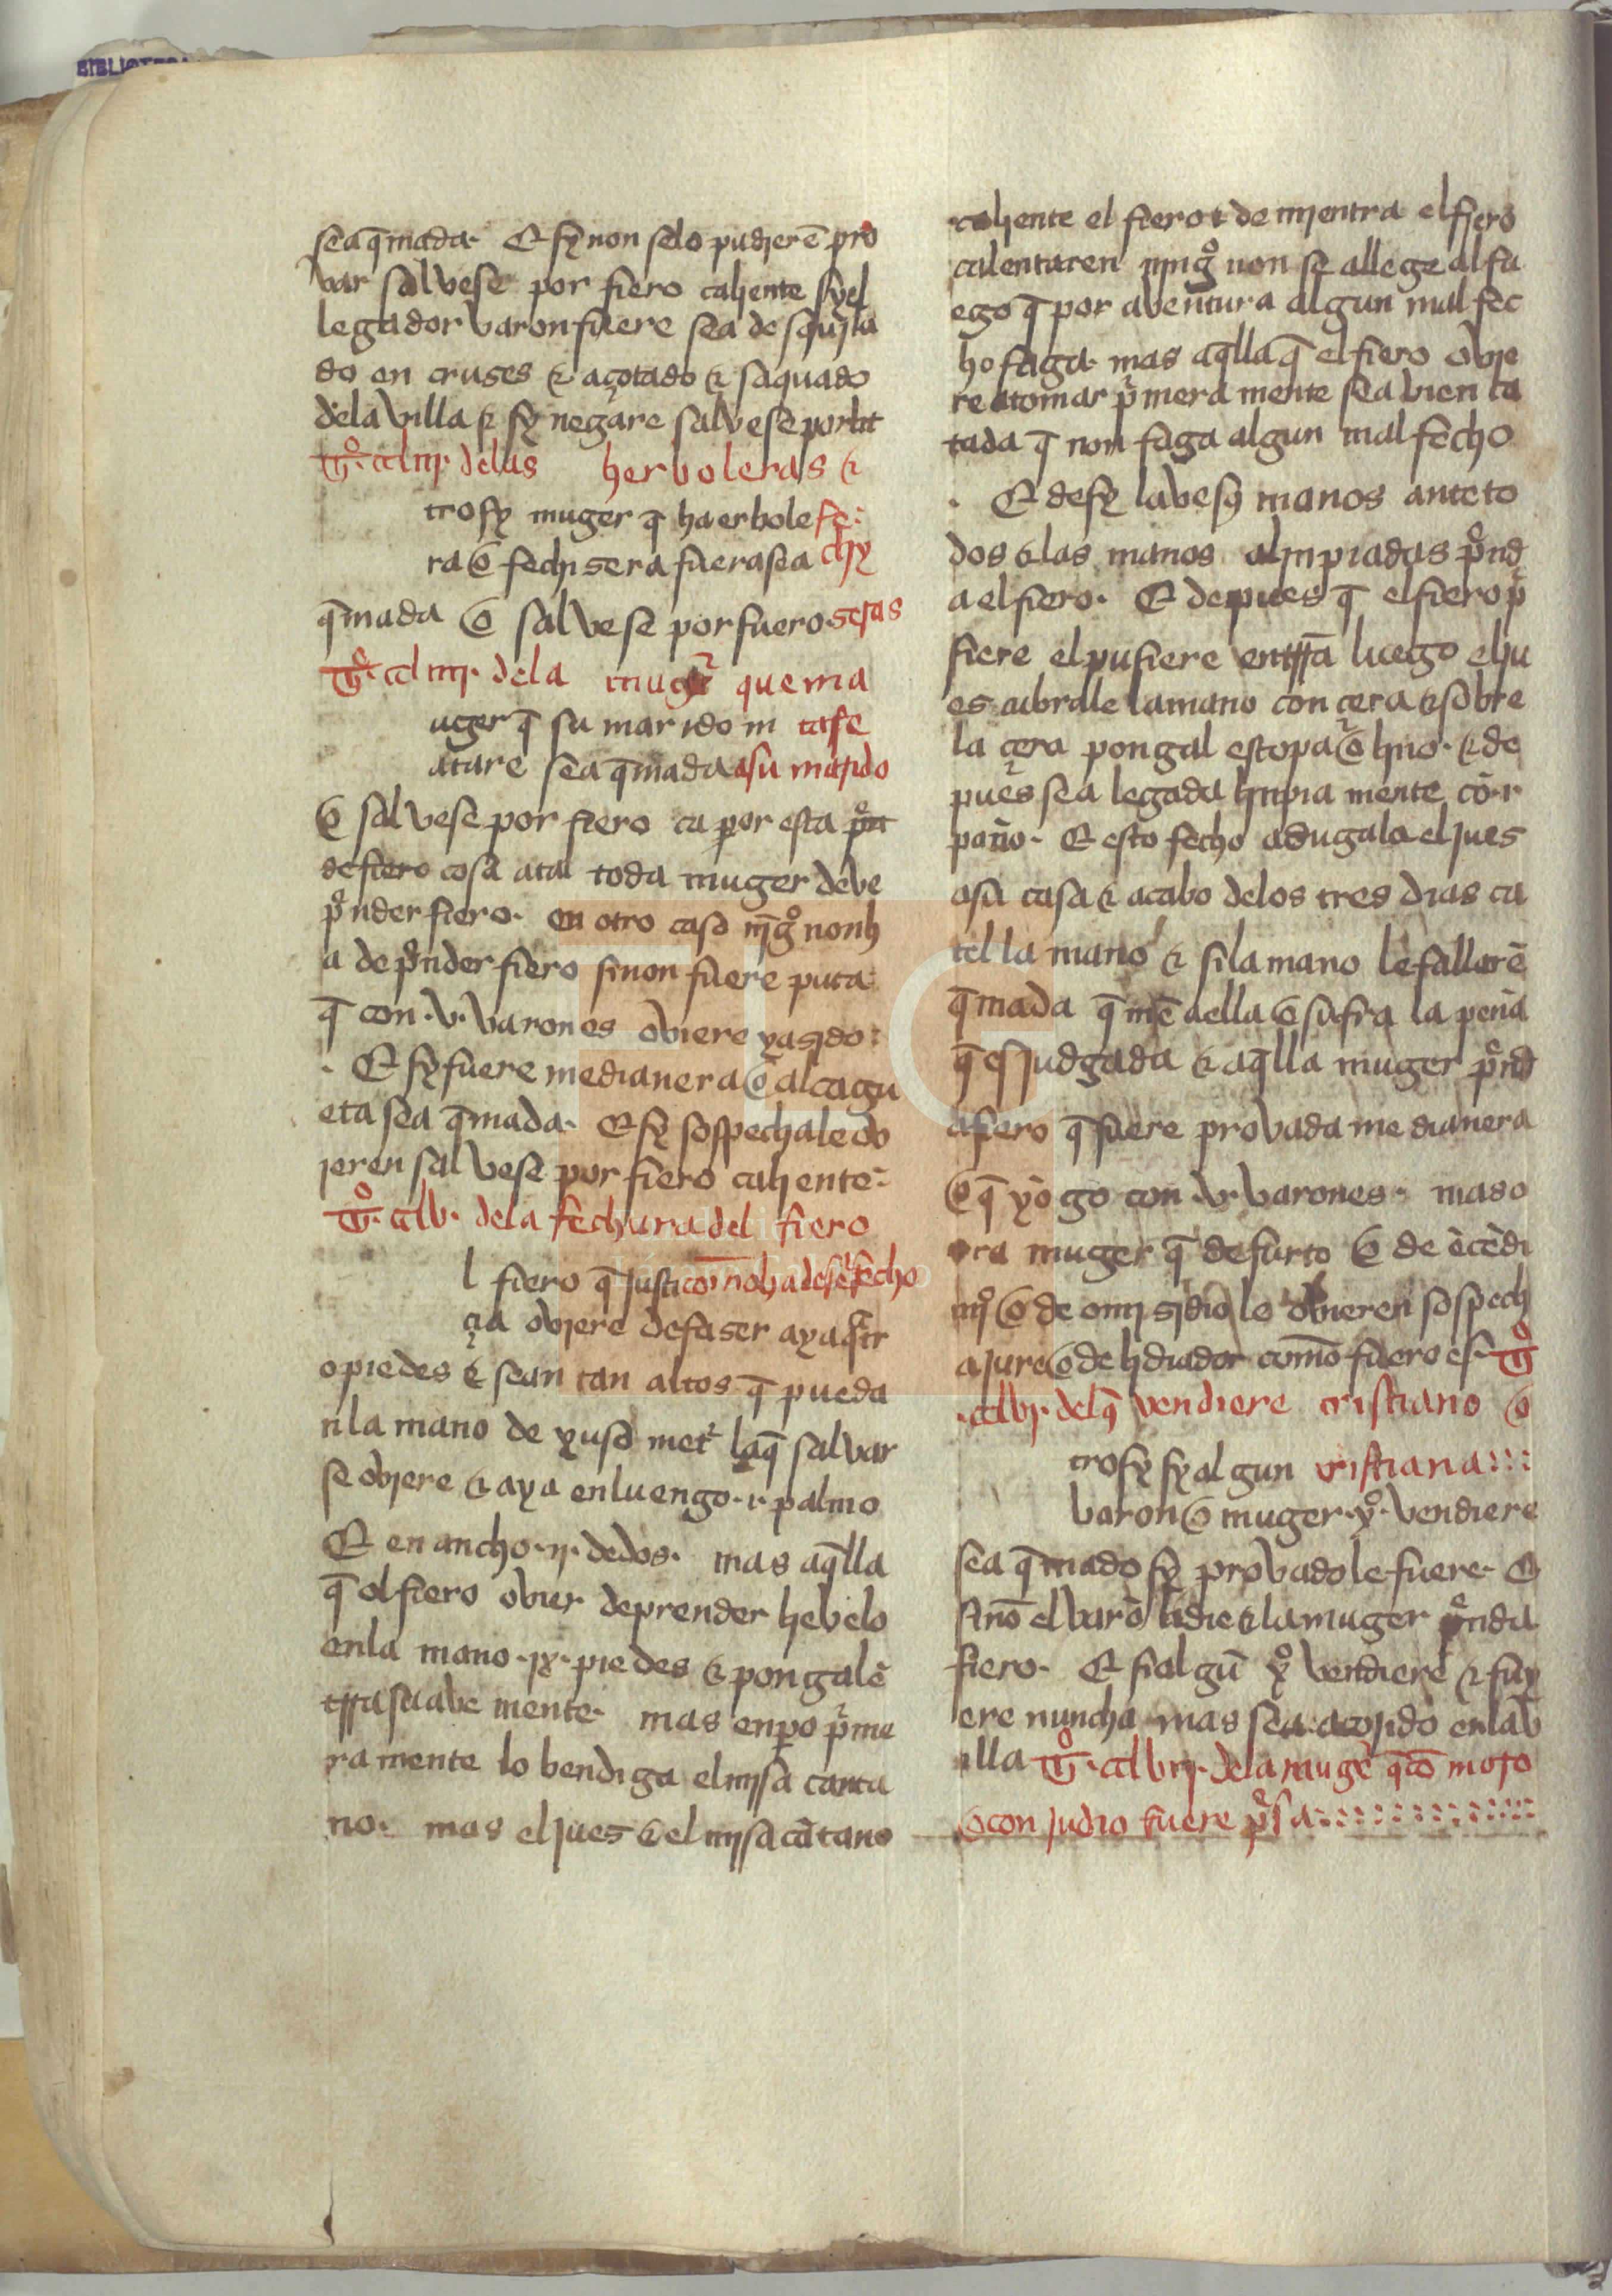 BIBLIOTECA
sea q̄mada. Et sy non selo pudierē pro
var salvese por fiero caliente sy el
legador varon fuere sea desquila
do en cruses & açotado & saquado
dela villa & sy negare salvese por lit
tº. ccliij. delas herboleras &
trosy muger q̄ ha erbole fe:
ra o fechisera fuera sea chy
q̄mada o salvese por fuero. seras
tº. ccliiij. dela muger que ma
uger q̄ su marido m tase
atare sea q̄mada asu marido
o salvese por fiero ca por esta
de fiero cosa atal toda muger deve
pºnder fiero. en otro caso njgº non h
a de pºnder fiero sinon fuere puta
q̄ con .v. varones oviere yasido:
. Et sy fuere medianera o alcagu
eta sea q̄mada. Et sy sospechale ov
ieren salvese por fiero caliente:
tº. cclv. dela fechura del fiero
l fiero q̄ justi com̄o ha de seer fecho
çia oviere de faser aya qtr
o piedes & sean tan altos q̄ pueda
n la mano de yuso met laq̄ salvar
se oviere & aya en luengo .i. palmo
Et en ancho .ij. dedos. mas aq̄lla
q̄ el fiero ovier de prender lievelo
enla mano .ix. piedes & pongalē
tjrra suave mente. mas enpo pⁱme
ra mente lo bendiga el mjsa canta
no. mas el jues & el mjsa cātano
caliente el fiero & de mientra el fiero
calentaren njngº non se allege al fu
ego q̄ por aventura algun mal fec
ho faga. mas aq̄lla q̄ el fiero ovie
re a tomar pⁱmera mente sea bien ca
tada q̄ non faga algun mal fecho
. Et desy labe sus manos ante to
dos & las manos alinpiadas pºnd
a el fiero. Et depues q̄ el fiero p
siere el pusiere en tjrra luego el ju
es cubrale la mano con çera & sobre
la çera pongal estopa o lino. & de
pues sea legada linpia mente cō .i.
paño. Et esto fecho adugala el jues
asu casa & acabo delos tres dias ca
tel la mano & si la mano le fallarē
q̄mada q̄mē aella o sufra la pena
q̄ es judgada & aq̄lla muger pºnd
a fiero q̄ fuere provada medianera
o q̄ yogo con .v. varones. mas o
tra muger q̄ de furto o de ēcēdi
mjº o de omisidio le ovieren sospech
a jure o de lidiador com̄o fuero es. tº
.cclvj. delq̄ vendiere cristiano o
trosy sy algun cristiana:::
baron o muger .xº. vendiere
sea q̄mado sy provadole fuere. E
sinō el varō lidie & la muger pºnda
fiero. Et si algū xº vendiere & fuy
ere nuncha mas sea acojido enla v
illa tº. cclvij. dela muger q̄ cō moro
o con judio fuere pºsa::::::::::